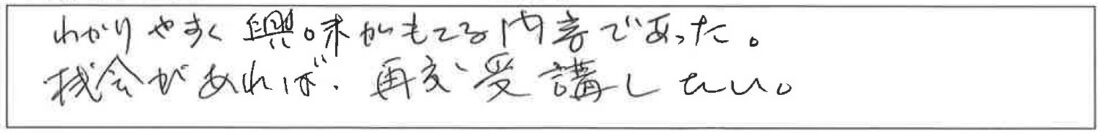 わかりやすく興味がもてる内容であった。
機会があれば、再び受講したい。